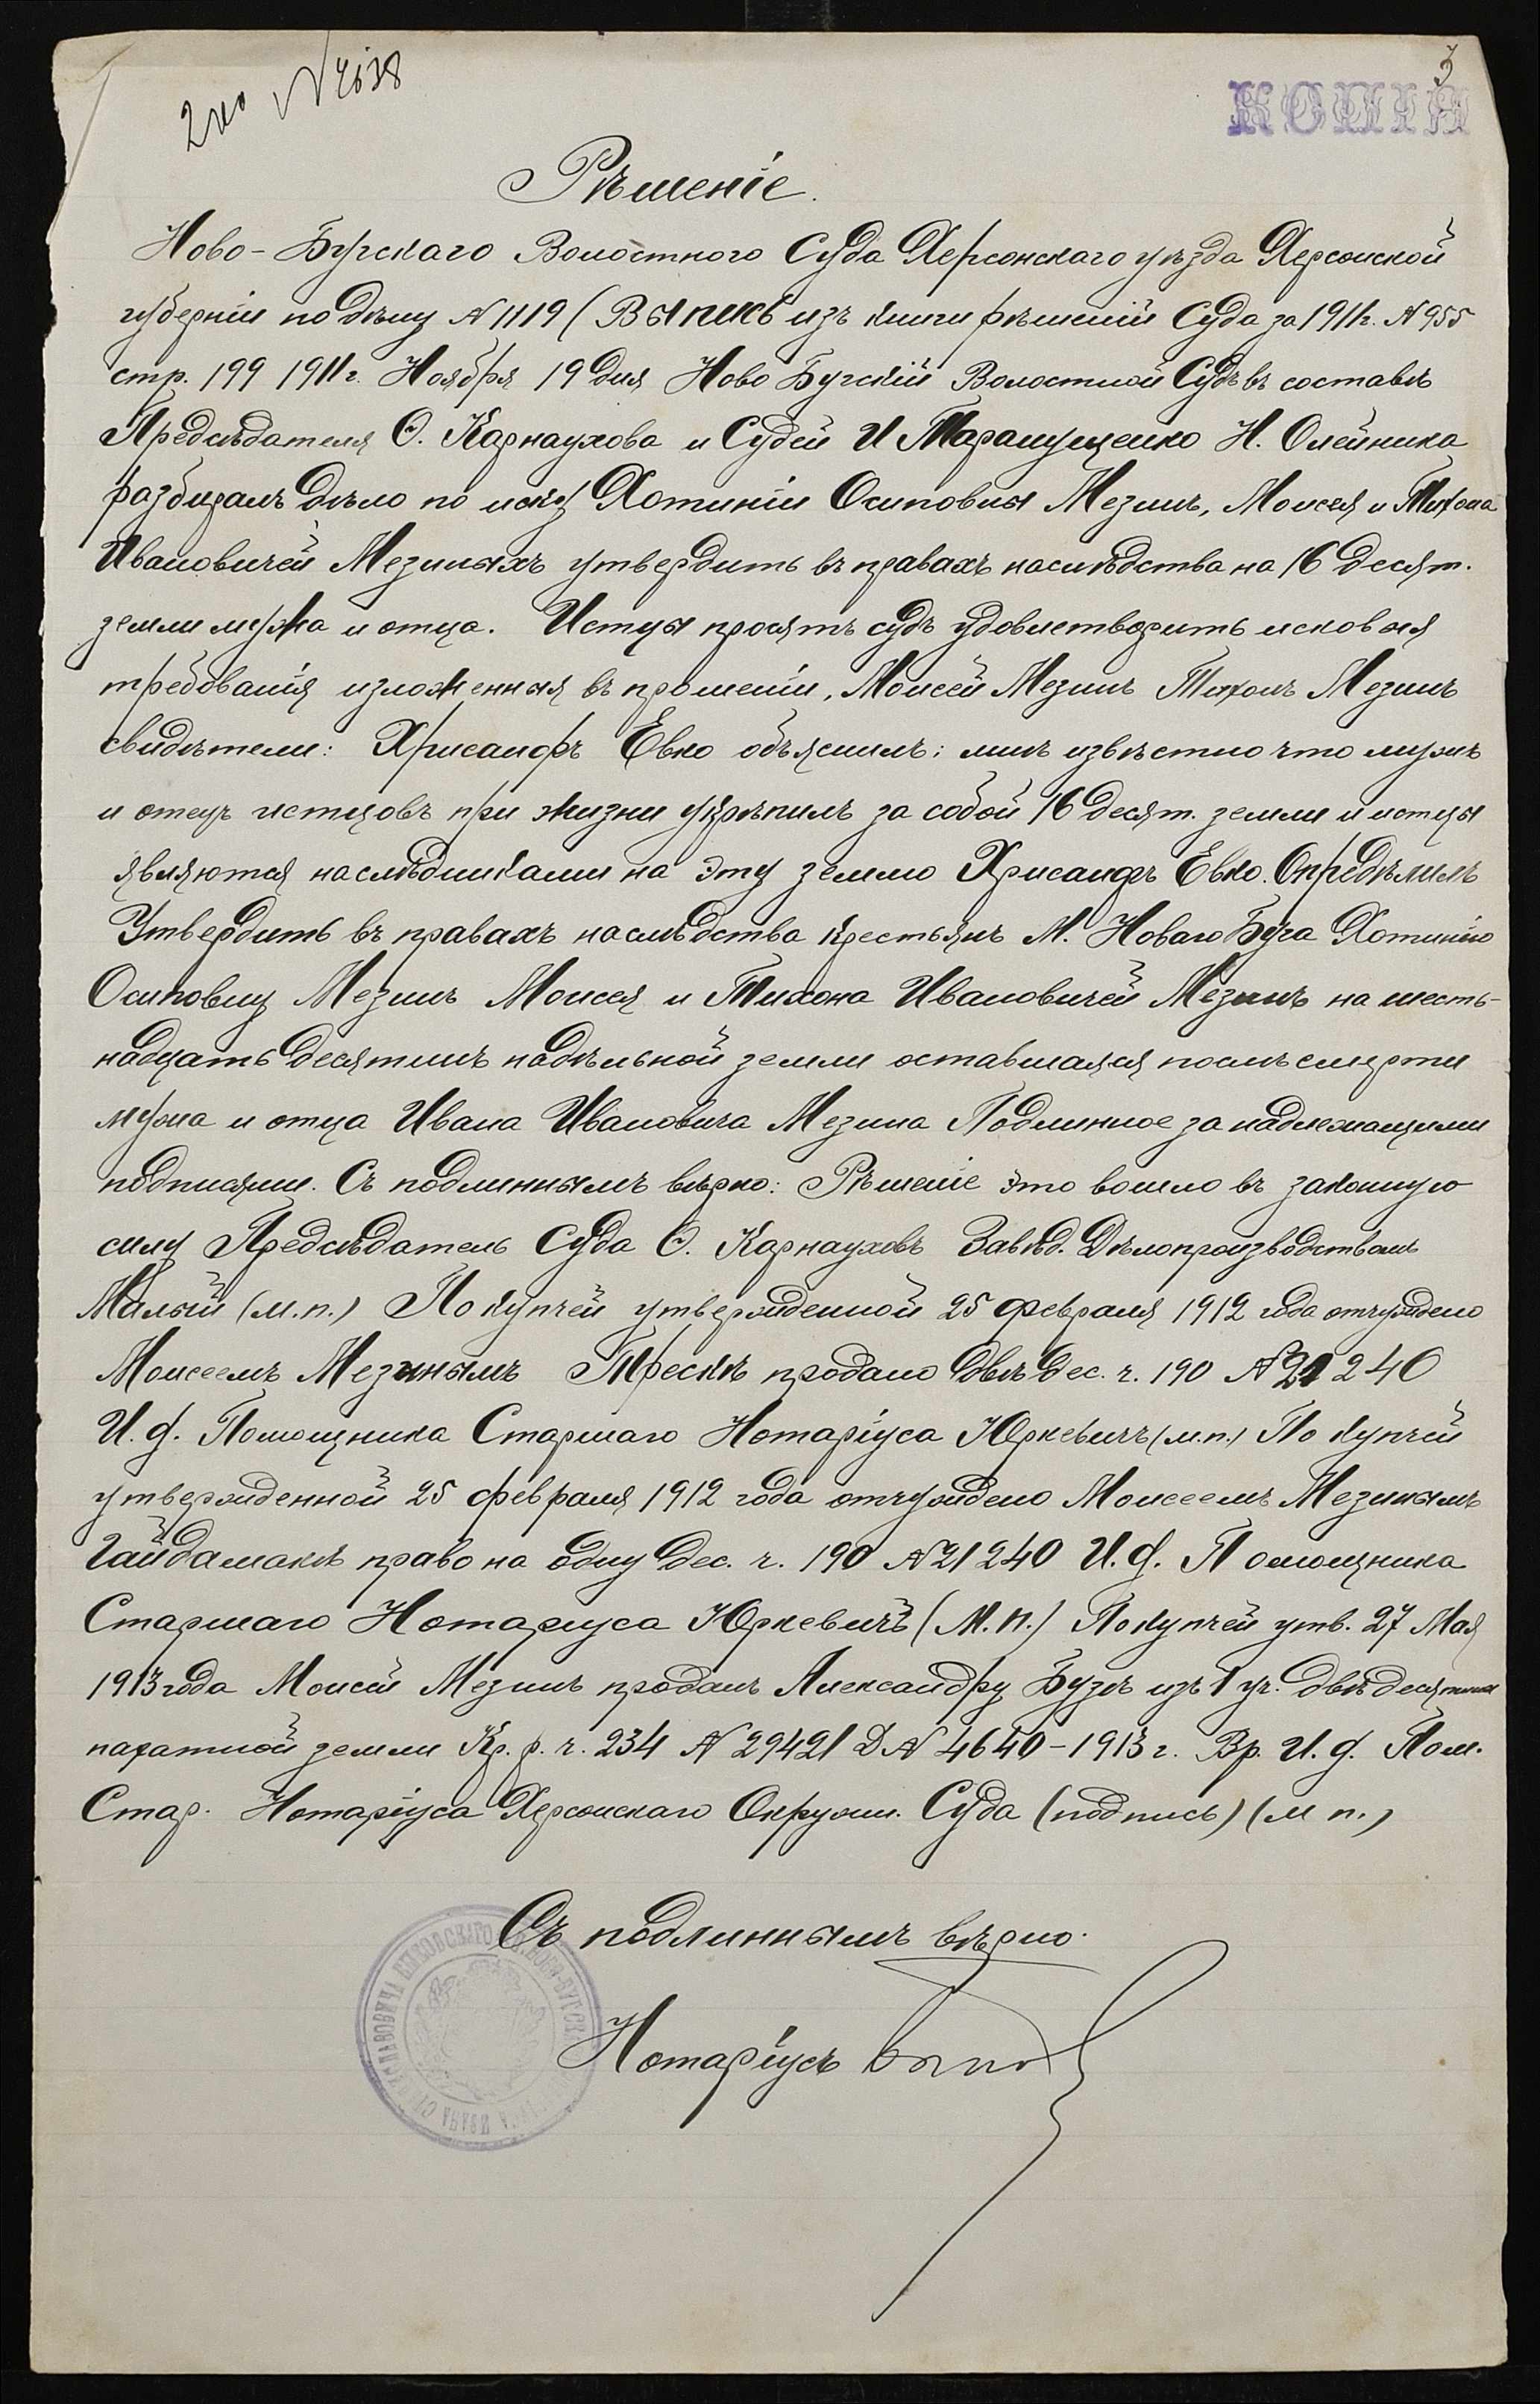 № 4638
3
КОПІЯ
Рѣшеніе.
Ново-Бугскаго Волостного Суда Херсонскаго уѣзда Херсонской
губерніи по дѣлу № 1119 (Выпись изъ книги рѣшеній Суда за 1911 г. № 955
стр. 199 1911 г. Ноября 19 дня Ново Бугскій Волостной Судъ въ составѣ
Предсѣдателя Ѳ. Карнаухова и Судей И Таращущенко Н. Олейника
разбиралъ дѣло по иску Хотиніи Осиповны Мезинъ, Моисея и Тихона
Ивановичей Мезиныхъ утвердить въ правахъ наслѣдства на 16 десят.
земли мужа и отца. Истцы просятъ судъ удовлетворить исковыя
требованія изложенныя въ прошеніи, Моисей Мезинъ Тихонъ Мезинъ
свидѣтели: Хрисанфъ Евко объяснилъ: мнѣ извѣстно что мужъ
и отецъ истцовъ при жизни укрѣпилъ за собой 16 десят. земли и истцы
являются наслѣдниками на эту землю Хрисанфъ Евко. Опредѣлилъ
Утвердить въ правахъ наслѣдства крестьянъ М. Новаго Буга Хотинію
Осиповну Мезинъ Моисея и Тихона Ивановичей Мезинъ на шесть-
надцать десятинъ надѣльной земли оставшаяся послѣ смерти
мужа и отца Ивана Ивановича Мезина Подлинное за надлежащими
подписями. Съ подлиннымъ вѣрно: Рѣшеніе это вошло въ законную
силу Предсѣдатель Суда Ѳ. Карнауховъ Завѣд. Дѣлопроизводствомъ
Малый (М.п.) По купчей утвержденной 25 февраля 1912 года отчуждено
Моисеемъ Мезинымъ Трескѣ продано двѣ дес. ч. 190 № 21240
И. д. Помощника Старшаго Нотаріуса Юркевичъ (м.п.) По купчей
утвержденной 25 февраля 1912 года отчуждено Моисеемъ Мезинымъ
Гайдамакѣ право на одну дес. ч. 190 № 21240 И. д. Помощника
Старшаго Нотаріуса Юркевичъ (М.п.) По купчей утв. 27 Мая
1913 года Моисей Мезинъ продалъ Александру Бузѣ изъ 1 уч. двѣ десятины
пахатной земли Кр. р. ч. 234 № 29421 Д № 4640-1913 г. Вр. И. д. Пом.
Стар. Нотаріуса Херсонскаго Окружн. Суда (подпись) (м п.)
Съ подлиннымъ вѣрно.
Нотаріусъ